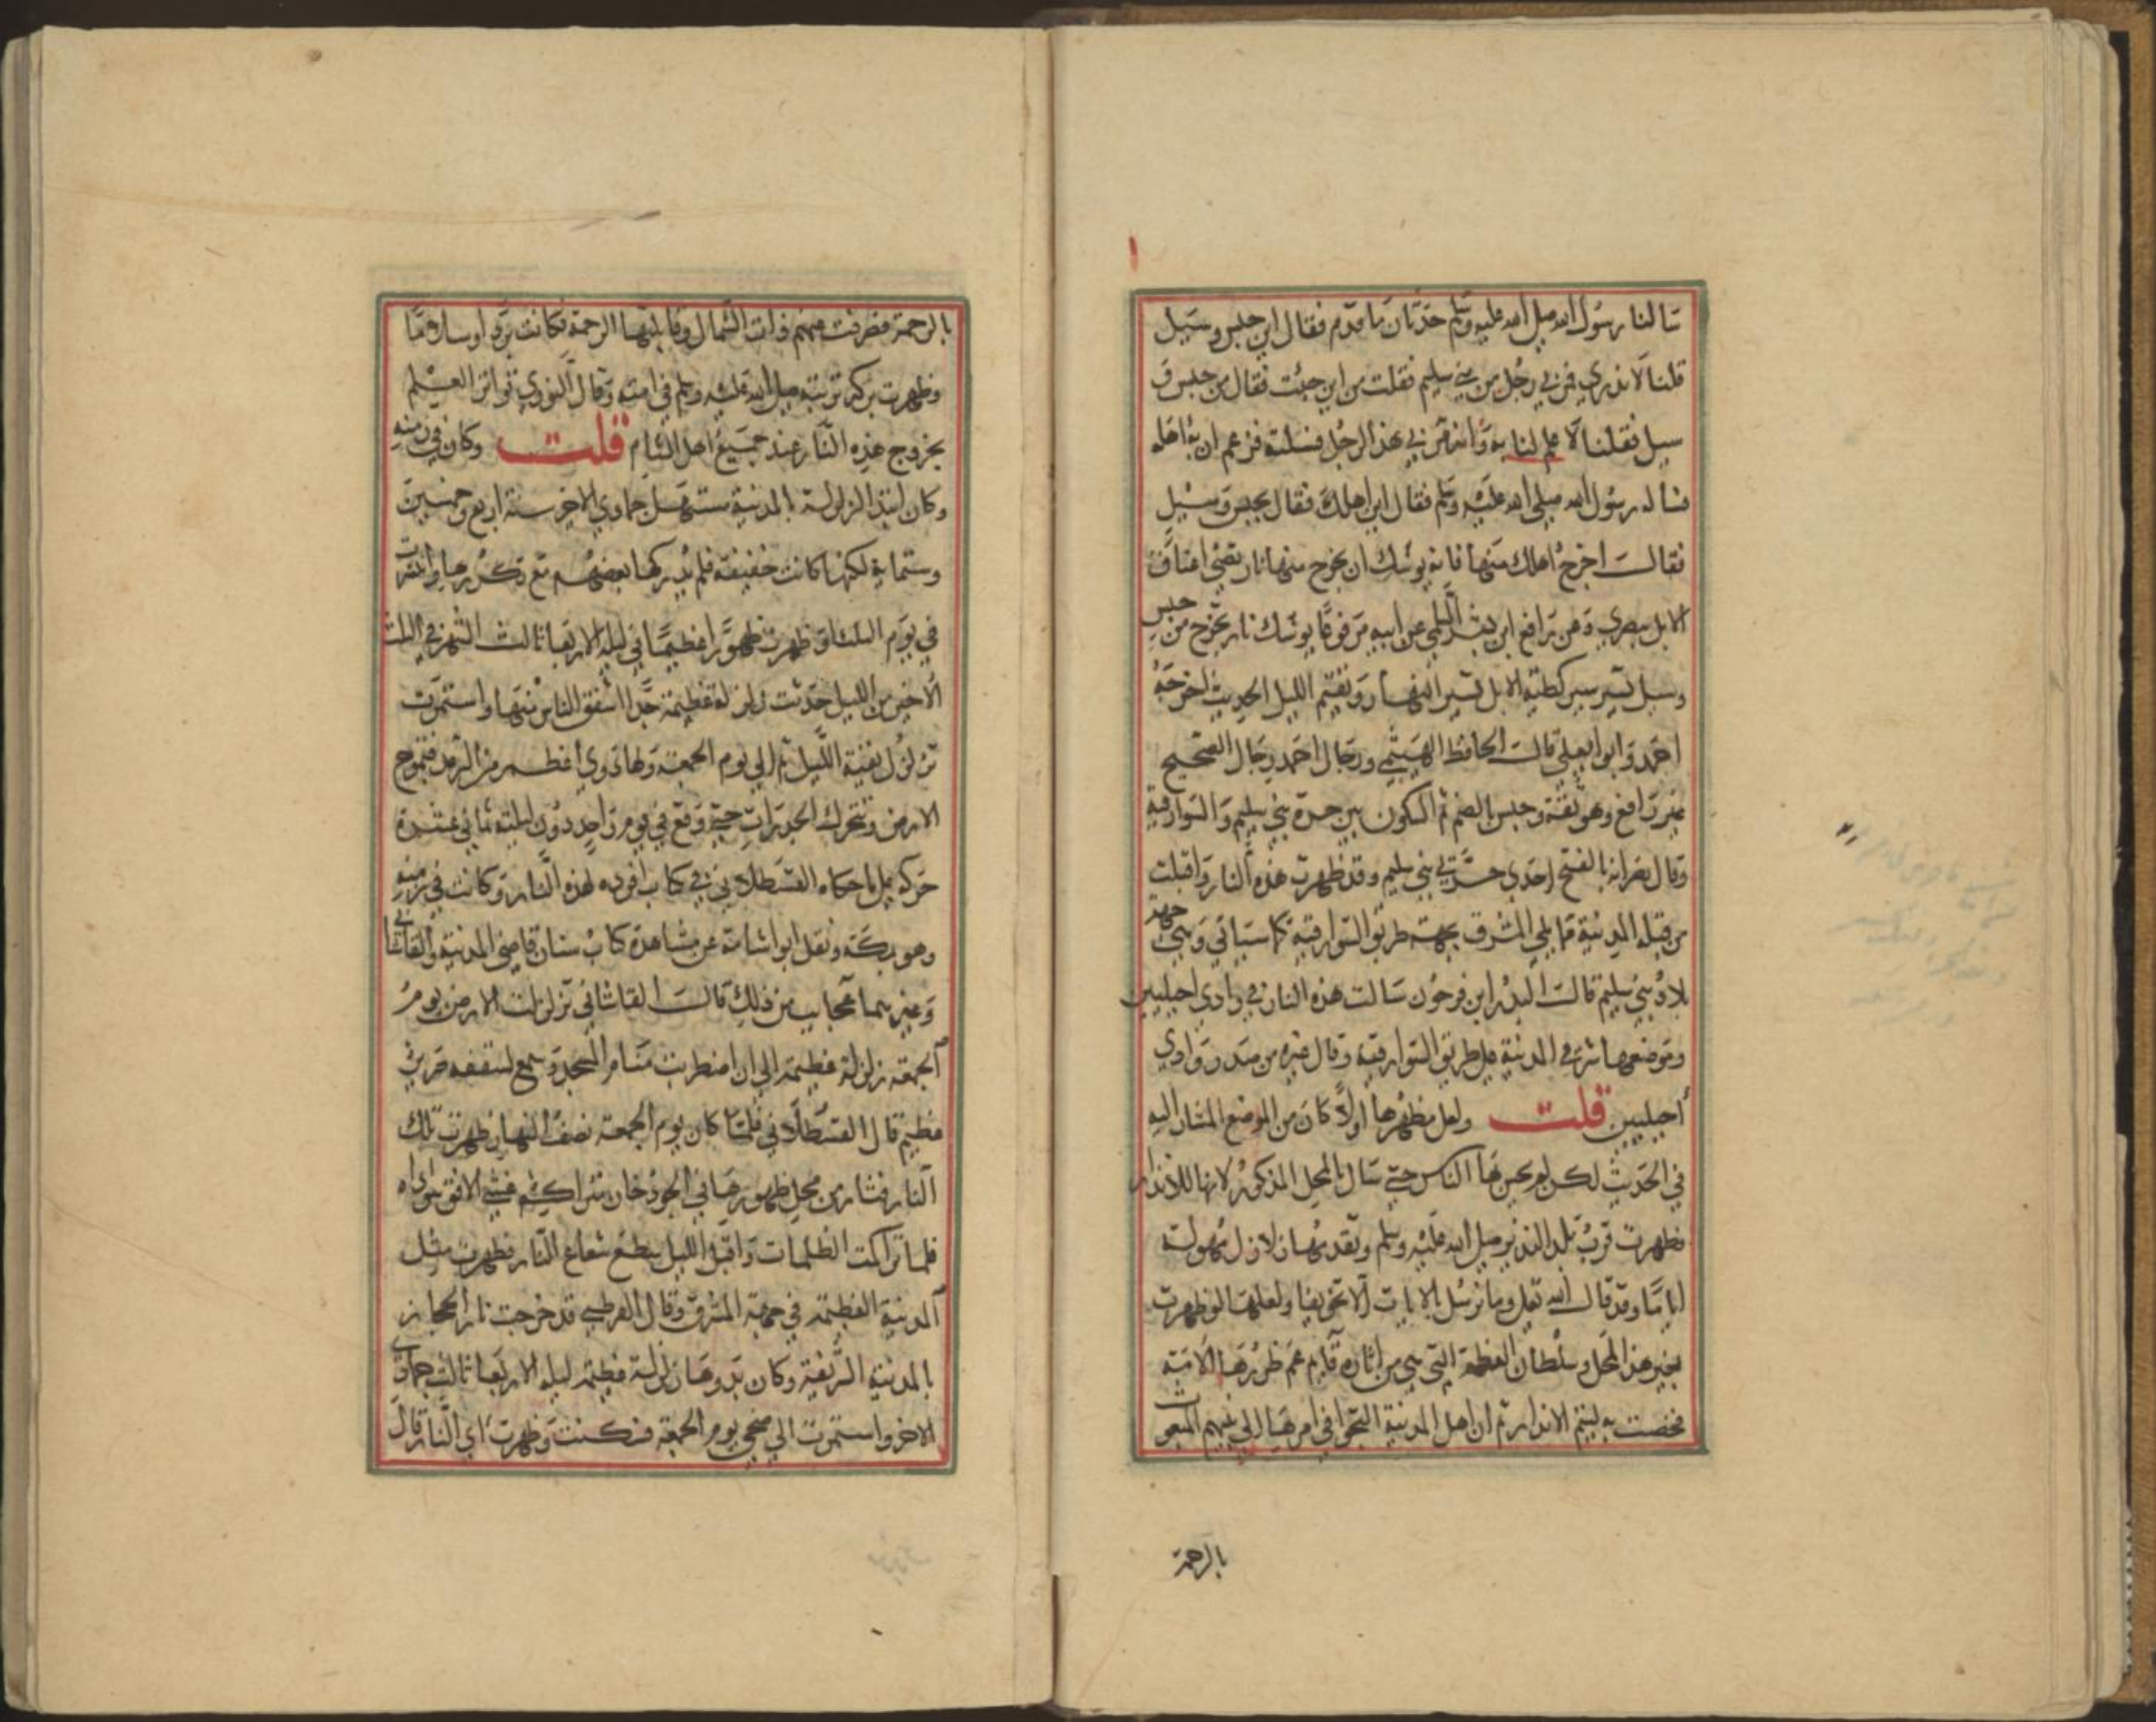 سالنا رسول الله صلى الله عليه وسلم حدثان ما قدم فقال اين حبس وسيل
قلنا لا ندري فمر بي رجل من بني سليم فقلت من اين جئت فقال من حبس و
سيل فقلنا لا علم لنا به وانه مر بي هذا الرجل فسالته فزعم ان به اهله
فساله رسول الله صلى الله عليه وسلم فقال اين اهلك فقال بحبس وسيل
فقالت اخرج اهلك منها فانه يوشك ان يخرج منها نار تضئ اعناق
الابل ببصري وعن رافع ابن بشر السلمي عن ابيه مرفوعا يوشك نار تخرج من حبس
وسيل تسير سير بطية الابل تسير النهار وتقيم الليل الحديث اخرجه
احمد وابو يعلى قالت الحافظ الهيثمي ورجال احمد رجال الصحيح
غير رافع وهو ثقة وحبس بالضم ثم السكون بين حرة بني سليم والسوارقية
وقال نصر انه بالفتح احدي حرتي بني سليم وقد ظهرت هذه النار واقبلت
من قبله المدينة مما يلي المشرق بجهة طريق السوارقية كما سياتي وهي جهة
بلاد بني سليم قالت البدر ابن فرحون سالت هذه النار في وادي احيليين
وموضعها شرقي المدينة على طريق السوارقية وقال غيره من صدر وادي
احيليين قلت ولعل مظهرها اولا كان من الموضع المشار اليه
في الحديث لكن لم يحس بها الناس حتى سال بالمحل المذكور لانها للانذار
فظهرت قرب بلد النذير صلى الله عليه وسلم وتقدمها زلازل مهولة
ايا ما وقد قالت الله تعلى وما نرسل بالايات الا تخويفا ولعلها لو ظهرت
بغير هذا المحل وسلطان العظمة التي هي من اثاره قايم عم ضررها الامة
فخصت به ليتم الانذار ثم ان اهل المدينة التجوا في امرها الي نبيهم المبعوث
بالرحمة
بالرحمة فصرفت عنهم ذات الشمال وقابلتها الرحمة فكانت بردا وسلاما
وظهرت بركة تربته صلى الله عليه وسلم في امته وقال النووي تواتر العلم
بخروج هذه النار عند جميع اهل الشام قلت وكان في زمنه
وكان ابتدا الزلزلة بالمدينة مستهل جمادي الاخر سنة اربع وخمسين
وستماية لكنها كانت خفيفة فلم يدركها بعضهم مع تكررها واشتدت
في يوم الثلثا وظهرت ظهورا عظيما في ليلة الاربعا ثالث الشهر في الثلث
الاخير من الليل حدثت زلزلة عظيمة جدا اشفق الناس منها واستمرت
تزلزل بقية الليل ثم الي يوم الجمعة ولها دوي اعظم من الرعد فتموج
الارض وتتحرك الجدرات حتى وقع في يوم واحد دون ليلته ثماني عشرة
حركة على ما حكاه القسطلاني في كتاب افرده لهذه النار وكانت في زمنه
وهو بمكة ونقل ابو اشامة عن مشاهدة كتاب سنان قاضي المدينة والقاشاني
وغيرهما عجايب من ذلك قالت القاشاني تزلزلت الارض يوم
الجمعة زلزلة عظيمة الي ان اضطربت منابر المسجد وسمع لسقفه صرير
عظيم قال القسطلاني فلما كان يوم الجمعة نصف النهار ظهرت تلك
النار فثار من محل ظهورها في الجو دخان متراكم غشى الافق سواده
فلما تراكمت الظلمات واقبل الليل سطع شعاع النار فظهرت مثل
المدينة العظيمة في جهة المشرق وقال القرطبي قد خرجت نار الحجاز
بالمدينة الشريفة وكان بدوها زلزلة عظيمة ليلة الاربعا ثالث جمادي
الاخر واستمرت الي ضحى يوم الجمعة فسكنت وظهرت اي النار قال